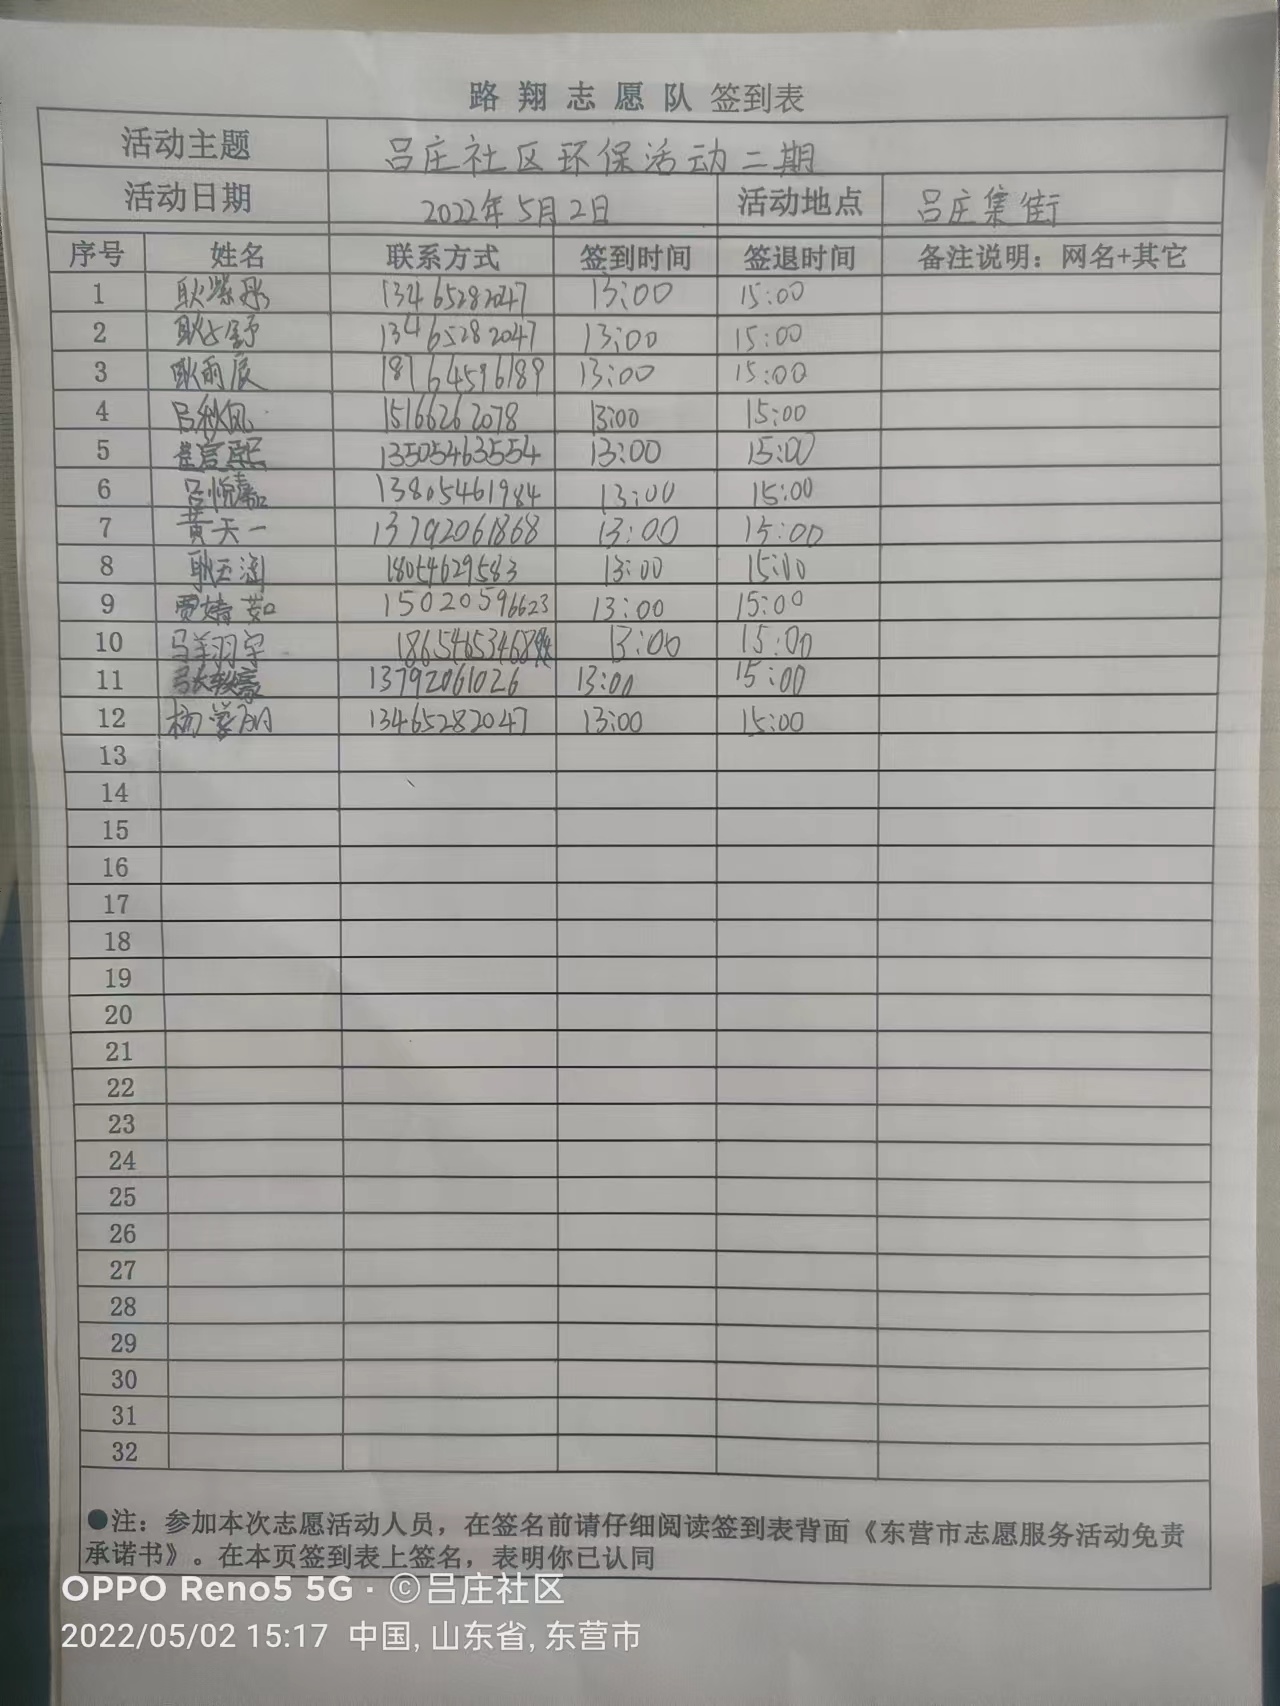 路翔志愿队 签到表
活动主题 吕庄社区环保活动二期
活动日期 2022年5月2日 活动地点 吕庄集街
序号 姓名 联系方式 签到时间 签退时间 备注说明：网名+其它
1 耿紫彤 13465282047 13:00 15:00
2 13465282047 13:00 15:00
3 耿雨辰 18764596189 13:00 15:00
4 吕秋凤 15166262078 13:00 15:00
5 13505463554 13:00 15:00
6 吕悦嘉 13805461984 13:00 15:00
7 黄天一 13792061868 13:00 15:00
8 耿玉涵 18054629583 13:00 15:00
9 贾婧茹 15020596623 13:00 15:00
10 马羽宇 13:00 15:00
11 张轶豪 13792061026 13:00 15:00
12 13465282047 13:00 15:00
13
14
15
16
17
18
19
20
21
22
23
24
25
26
27
28
29
30
31
32
●注：参加本次志愿活动人员，在签名前请仔细阅读签到表背面《东营市志愿服务活动免责
承诺书》。在本页签到表上签名，表明你已认同
OPPO Reno5 5G · ©吕庄社区
2022/05/02 15:17 中国, 山东省, 东营市